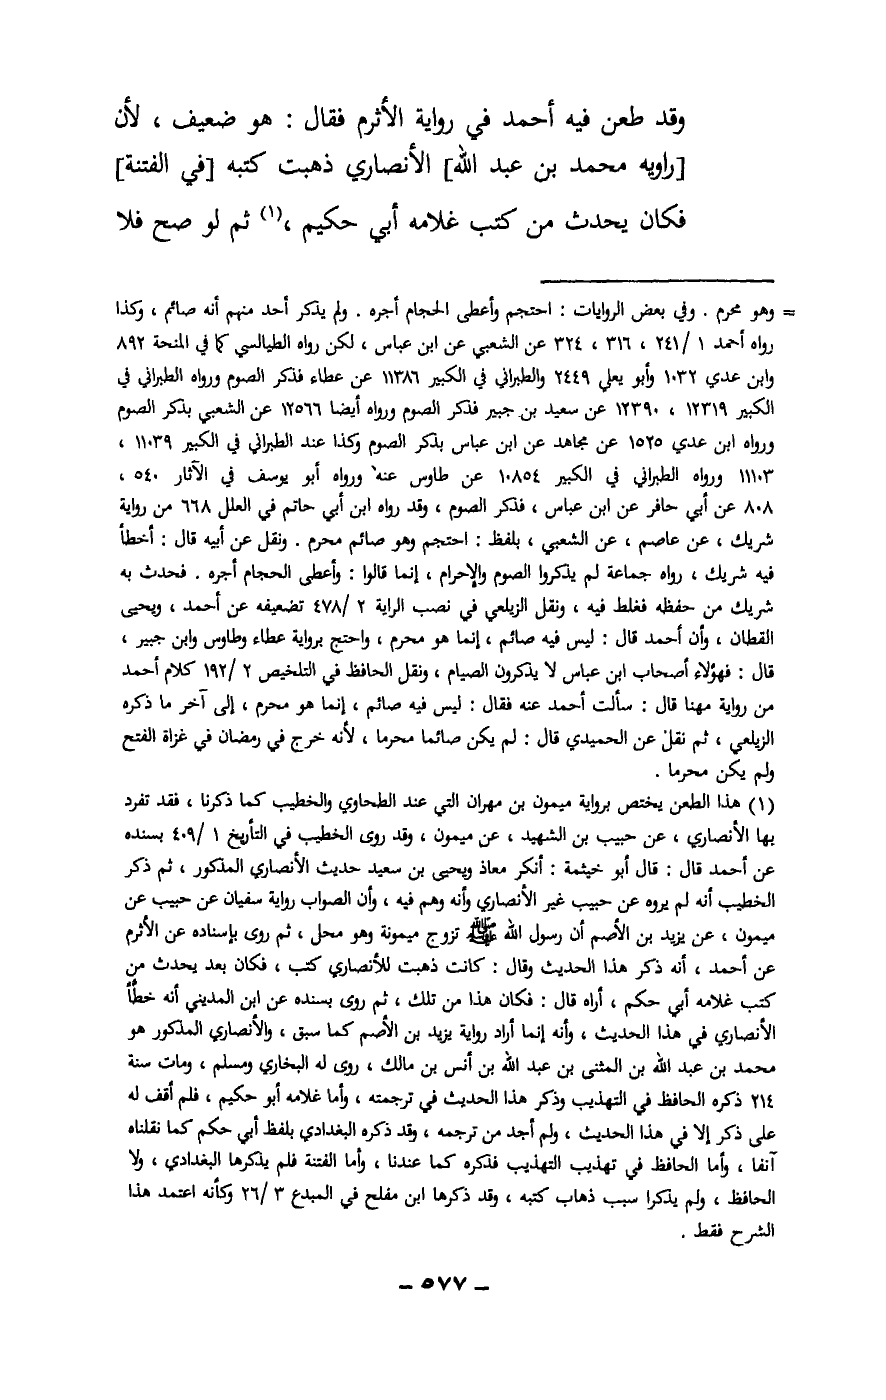 وقد طعن فيه أحمد في رواية الأثرم فقال : هو ضعيف ، لأن
[راويه محمد بن عبد الله] الأنصاري ذهبت كتبه [في الفتنة]
فكان يحدث من كتب غلامه أبي حكيم ،(١) ثم لو صح فلا
= وهو محرم . وفي بعض الروايات : احتجم وأعطى الحجام أجره . ولم يذكر أحد منهم أنه صائم ، وكذا
رواه أحمد ١ /٢٤١ ، ٣١٦ ، ٣٢٤ عن الشعبي عن ابن عباس ، لكن رواه الطيالسي كما في المنحة ٨٩٢
وابن عدي ١٠٣٢ وأبو يعلي ٢٤٤٩ والطبراني في الكبير ١١٣٨٦ عن عطاء فذكر الصوم ورواه الطبراني في
الكبير ١٢٣١٩ ، ١٢٣٩٠ عن سعيد بن جبير فذكر الصوم ورواه أيضا ١٢٥٦٦ عن الشعبي بذكر الصوم
ورواه ابن عدي ١٥٢٥ عن مجاهد عن ابن عباس بذكر الصوم وكذا عند الطبراني في الكبير ١١٠٣٩ ،
١١١٠٣ ورواه الطبراني في الكبير ١٠٨٥٤ عن طاوس عنه ورواه أبو يوسف في الآثار ٥٤٠ ،
٨٠٨ عن أبي حافر عن ابن عباس ، فذكر الصوم ، وقد رواه ابن أبي حاتم في العلل ٦٦٨ من رواية
شريك ، عن عاصم ، عن الشعبي ، بلفظ : احتجم وهو صائم محرم . ونقل عن أبيه قال : أخطأ
فيه شريك ، رواه جماعة لم يذكروا الصوم والإحرام ، إنما قالوا : وأعطى الحجام أجره . فحدث به
شريك من حفظه فغلط فيه ، ونقل الزيلعي في نصب الراية ٢ /٤٧٨ تضعيفه عن أحمد ، ويحيى
القطان ، وأن أحمد قال : ليس فيه صائم ، إنما هو محرم ، واحتج برواية عطاء وطاوس وابن جبير ،
قال : فهؤلاء أصحاب ابن عباس لا يذكرون الصيام ، ونقل الحافظ في التلخيص ٢ /١٩٢ كلام أحمد
من رواية مهنا قال : سألت أحمد عنه فقال : ليس فيه صائم ، إنما هو محرم ، إلى آخر ما ذكره
الزيلعي ، ثم نقل عن الحميدي قال : لم يكن صائما محرما ، لأنه خرج في رمضان في غزاة الفتح
ولم يكن محرما .
(١) هذا الطعن يختص برواية ميمون بن مهران التي عند الطحاوي والخطيب كما ذكرنا ، فقد تفرد
بها الأنصاري ، عن حبيب بن الشهيد ، عن ميمون ، وقد روى الخطيب في التأريخ ١ /٤٠٩ بسنده
عن أحمد قال : قال أبو خيثمة : أنكر معاذ ويحيى بن سعيد حديث الأنصاري المذكور ، ثم ذكر
الخطيب أنه لم يروه عن حبيب غير الأنصاري وأنه وهم فيه ، وأن الصواب رواية سفيان عن حبيب عن
ميمون ، عن يزيد بن الأصم أن رسول الله ﷺ تزوج ميمونة وهو محل ، ثم روى بإسناده عن الأثرم
عن أحمد ، أنه ذكر هذا الحديث وقال : كانت ذهبت للأنصاري كتب ، فكان بعد يحدث من
كتب غلامه أبي حكم ، أراه قال : فكان هذا من تلك ، ثم روى بسنده عن ابن المديني أنه خطأ
الأنصاري في هذا الحديث ، وأنه إنما أراد رواية يزيد بن الأصم كما سبق ، والأنصاري المذكور هو
محمد بن عبد الله بن المثنى بن عبد الله بن أنس بن مالك ، روى له البخاري ومسلم ، ومات سنة
٢١٤ ذكره الحافظ في التهذيب وذكر هذا الحديث في ترجمته ، وأما غلامه أبو حكيم ، فلم أقف له
على ذكر إلا في هذا الحديث ، ولم أجد من ترجمه ، وقد ذكره البغدادي بلفظ أبي حكم كما نقلناه
آنفا ، وأما الحافظ في تهذيب التهذيب فذكره كما عندنا ، وأما الفتنة فلم يذكرها البغدادي ، ولا
الحافظ ، ولم يذكرا سبب ذهاب كتبه ، وقد ذكرها ابن مفلح في المبدع ٣ /٢٦ وكأنه اعتمد هذا
الشرح فقط .
ـ ٥٧٧ ـ